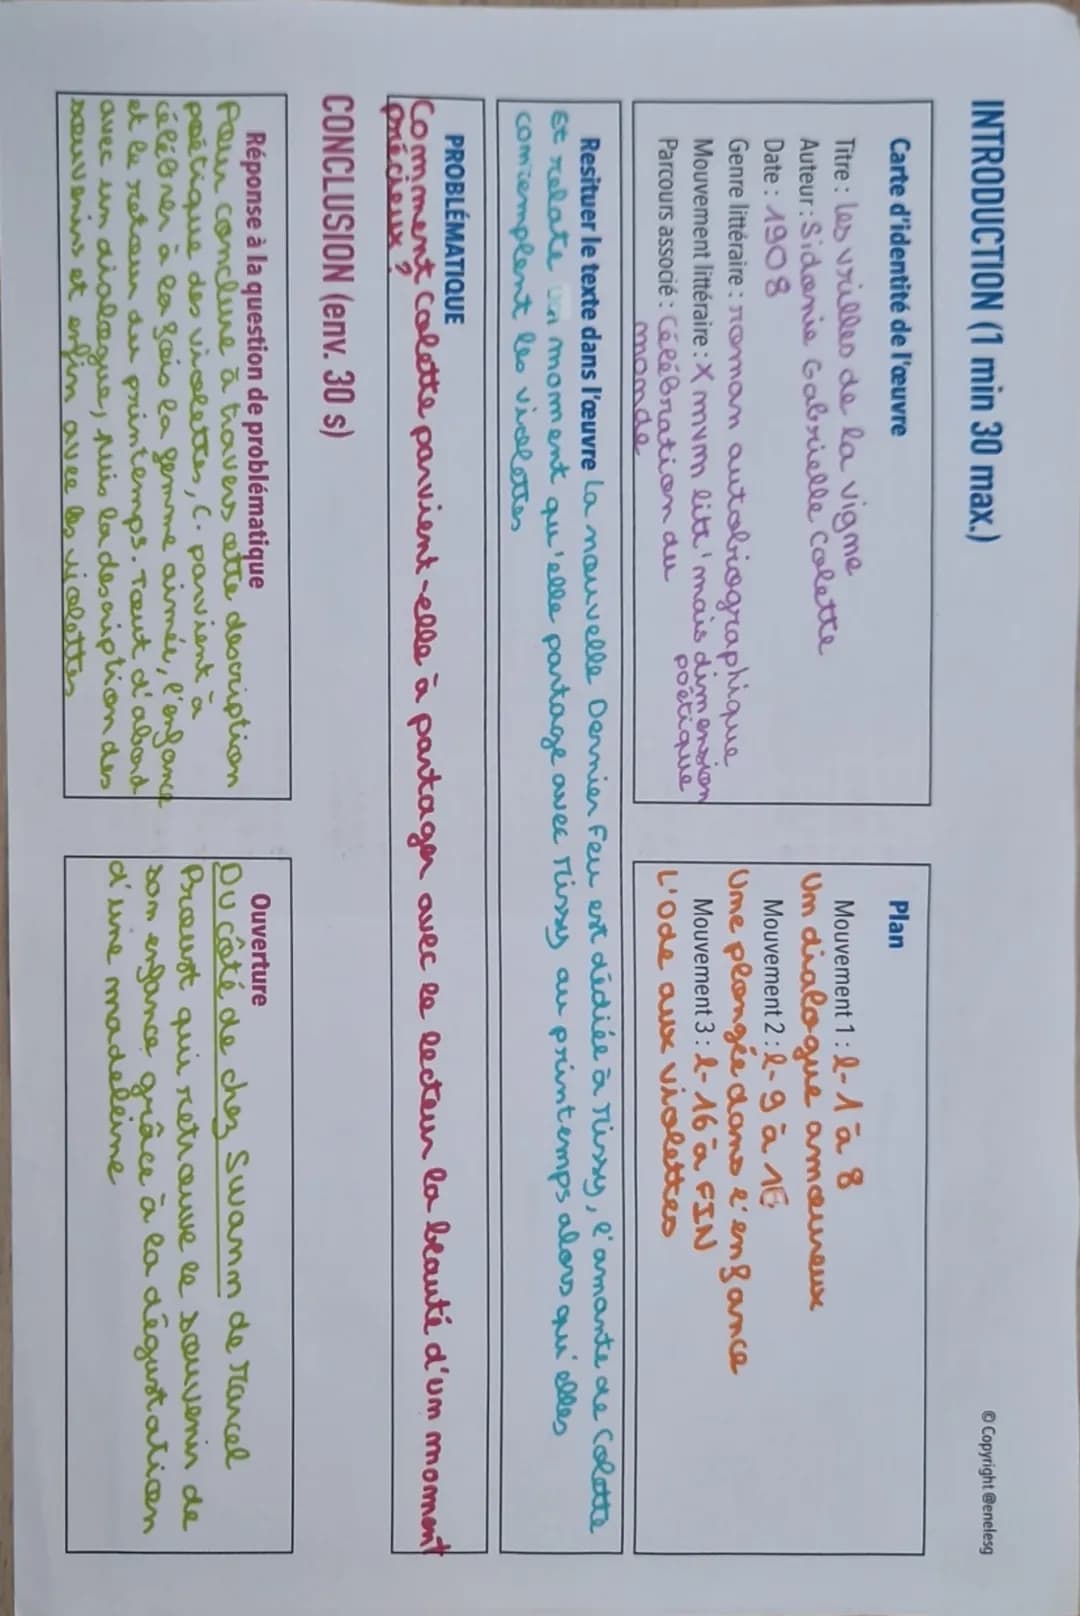 INTRODUCTION (1 min 30 max.)
© Copyright @enelesg
Carte d'identité de l'œuvre
Titre : les vrilles de la vigne
Auteur : Sidonie Gabrielle Colette
Date : 1908
Genre littéraire : roman autobiographique
Mouvement littéraire : X mvm litt' mais dimension
poétique
Parcours associé : Célébration du
monde
Plan
Mouvement 1 : l-1 à 8
Un dialogue amoureux
Mouvement 2 : l-9 à 16
Une plongée dans l'enfance
Mouvement 3 : l-16 à FIN
L'ode aux violettes
Resituer le texte dans l'œuvre La nouvelle Dernier Feu est dédiée à Missy, l'amante de Colette
et relate un moment qu'elle partage avec Missy au printemps alors qu'elles
contemplent les violettes
PROBLÉMATIQUE
Comment Colette parvient-elle à partager avec le lecteur la beauté d'un moment
précieux ?
CONCLUSION (env. 30 s)
Réponse à la question de problématique
Pour conclure à travers cette description
poétique des violettes, C. parvient à
célébrer à la fois la femme aimée, l'enfance
et le retour du printemps. Tout d'abord
avec un dialogue, puis la description des
souvenirs et enfin avec les violettes
Ouverture
Du côté de chez Swann de Marcel
Proust qui retrouve le souvenir de
son enfance grâce à la dégustation
d'une madeleine